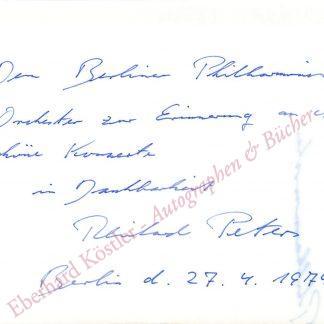 Dem Berliner Philharmon
Orchester zur Erinnerung an
schöne Konzerte
in Dankbarkeit
Reinhard Peters
Berlin d. 27. 4. 1974
Eberhard Köstler · Autographen & Bücher